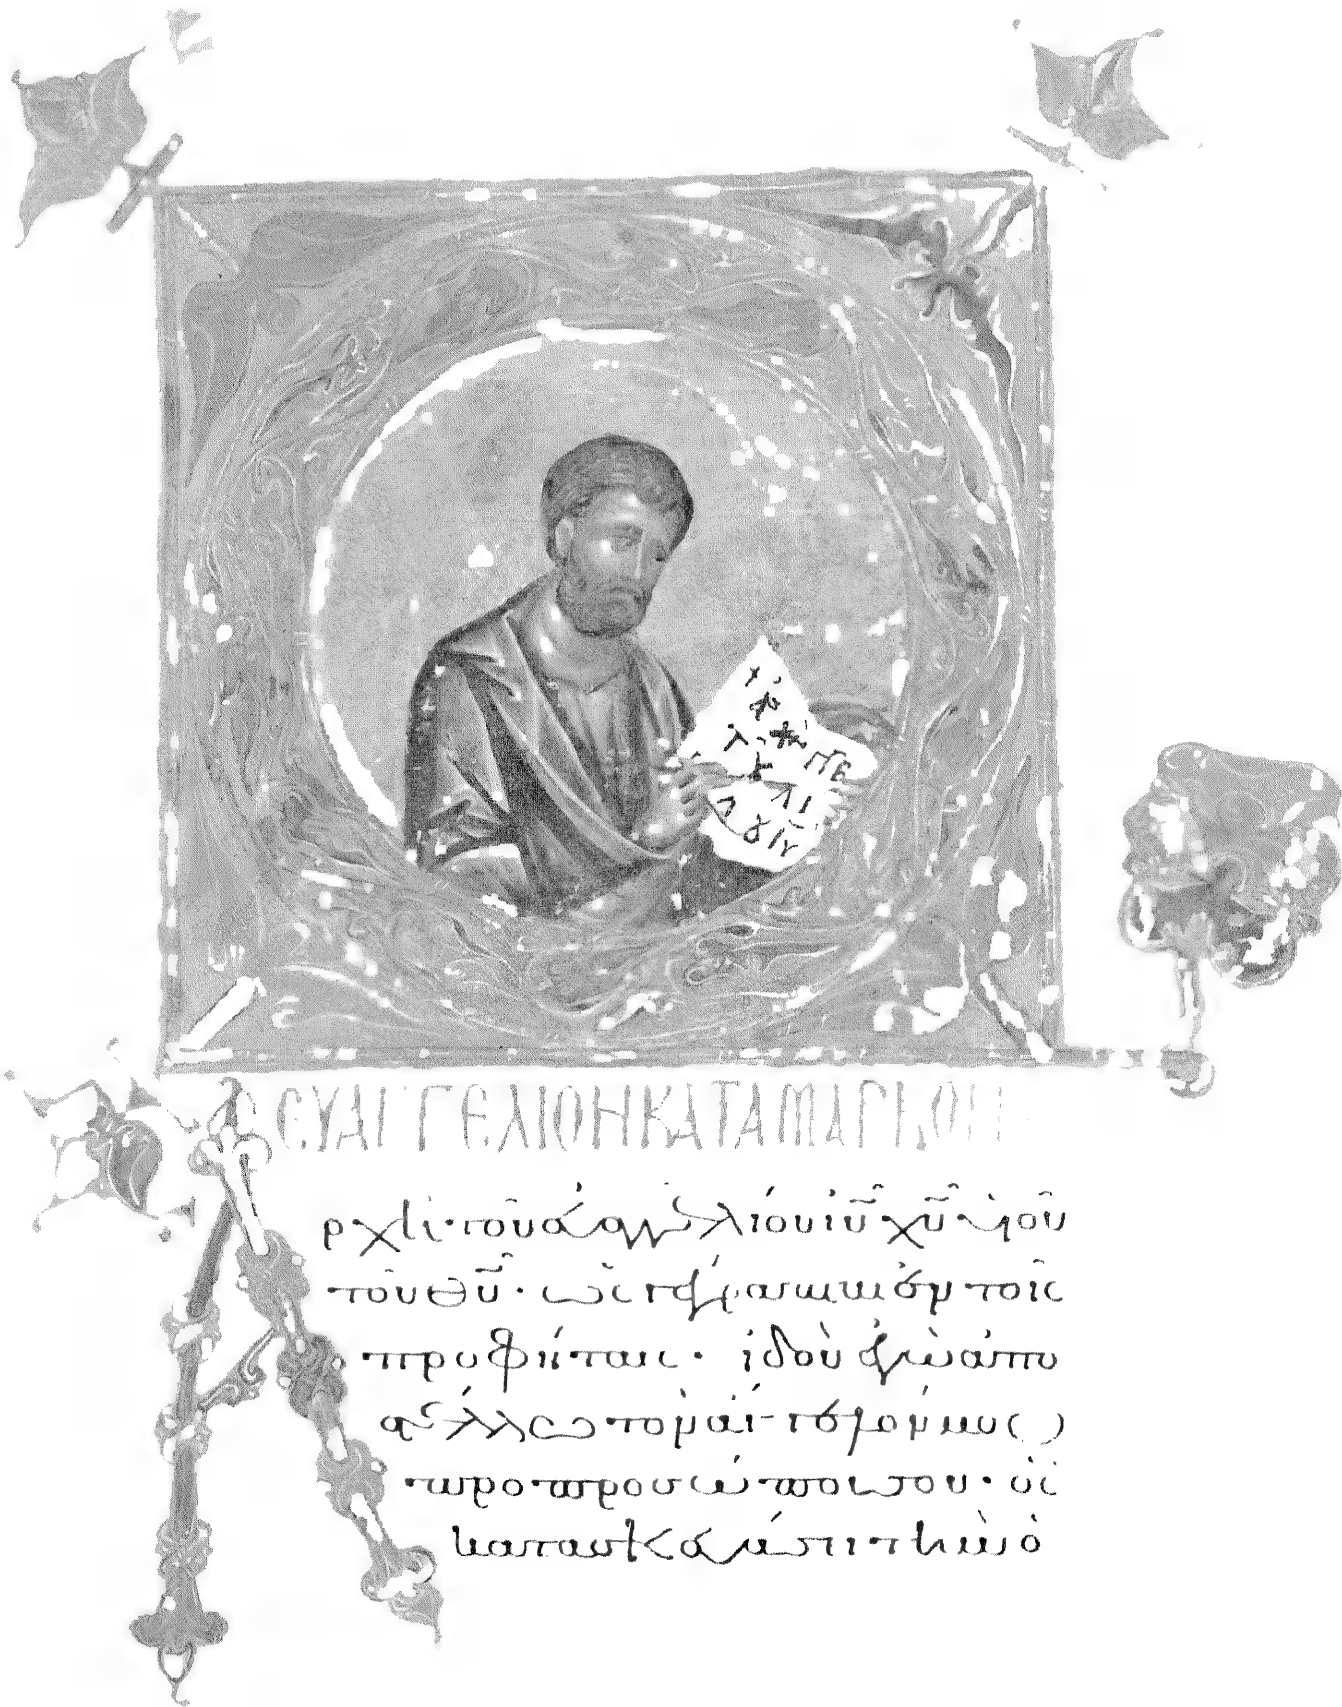 ΕΥΑΓΓΕΛΙΟΝ ΚΑΤΑ ΜΑΡΚΟΝ
Ἀρχὴ τοῦ ἐυαγγελίου ἰῦ χῦ ὑιοῦ
τοῦ θῦ· ὡς γέγραπται ἐν τοῖς
προφήταις· ἰδοὺ ἐγὼ ἀπο
στέλλω τὸν ἄγγελόν μου
πρὸ προσώπου σου· ὃς
κατασκευάσει τὴν ὁ